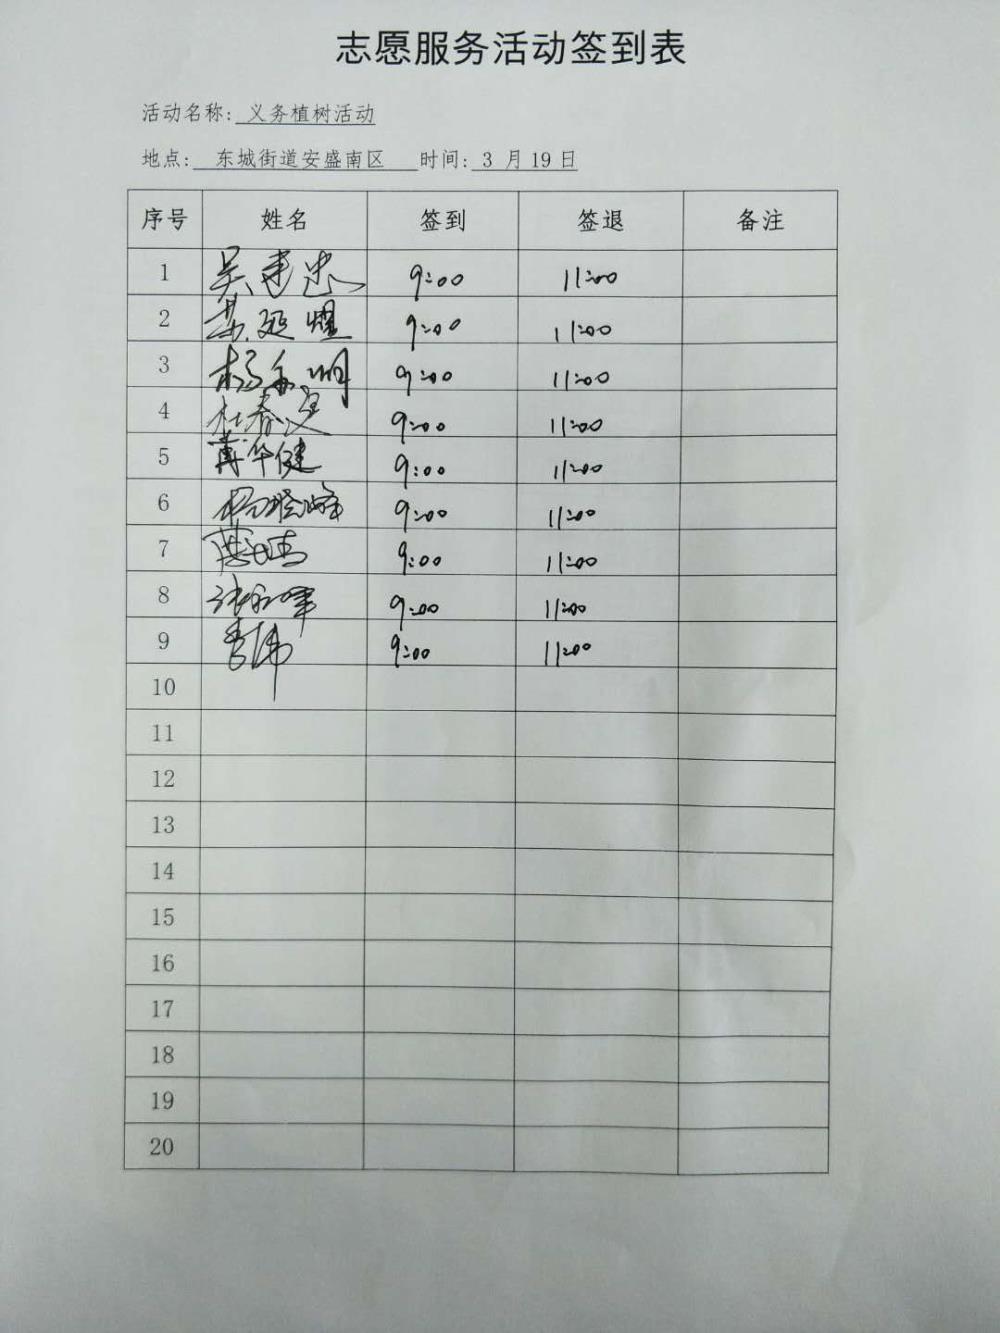 志愿服务活动签到表
活动名称: 义务植树活动
地点: 东城街道安盛南区 时间: 3 月 19 日
序号 姓名 签到 签退 备注
1 吴建忠 9:00 11:00
2 苏延耀 9:00 11:00
3 杨永明 9:00 11:00
4 杜春汉 9:00 11:00
5 黄华健 9:00 11:00
6 杨晓峰 9:00 11:00
7 9:00 11:00
8 张永峰 9:00 11:00
9 李伟 9:00 11:00
10
11
12
13
14
15
16
17
18
19
20